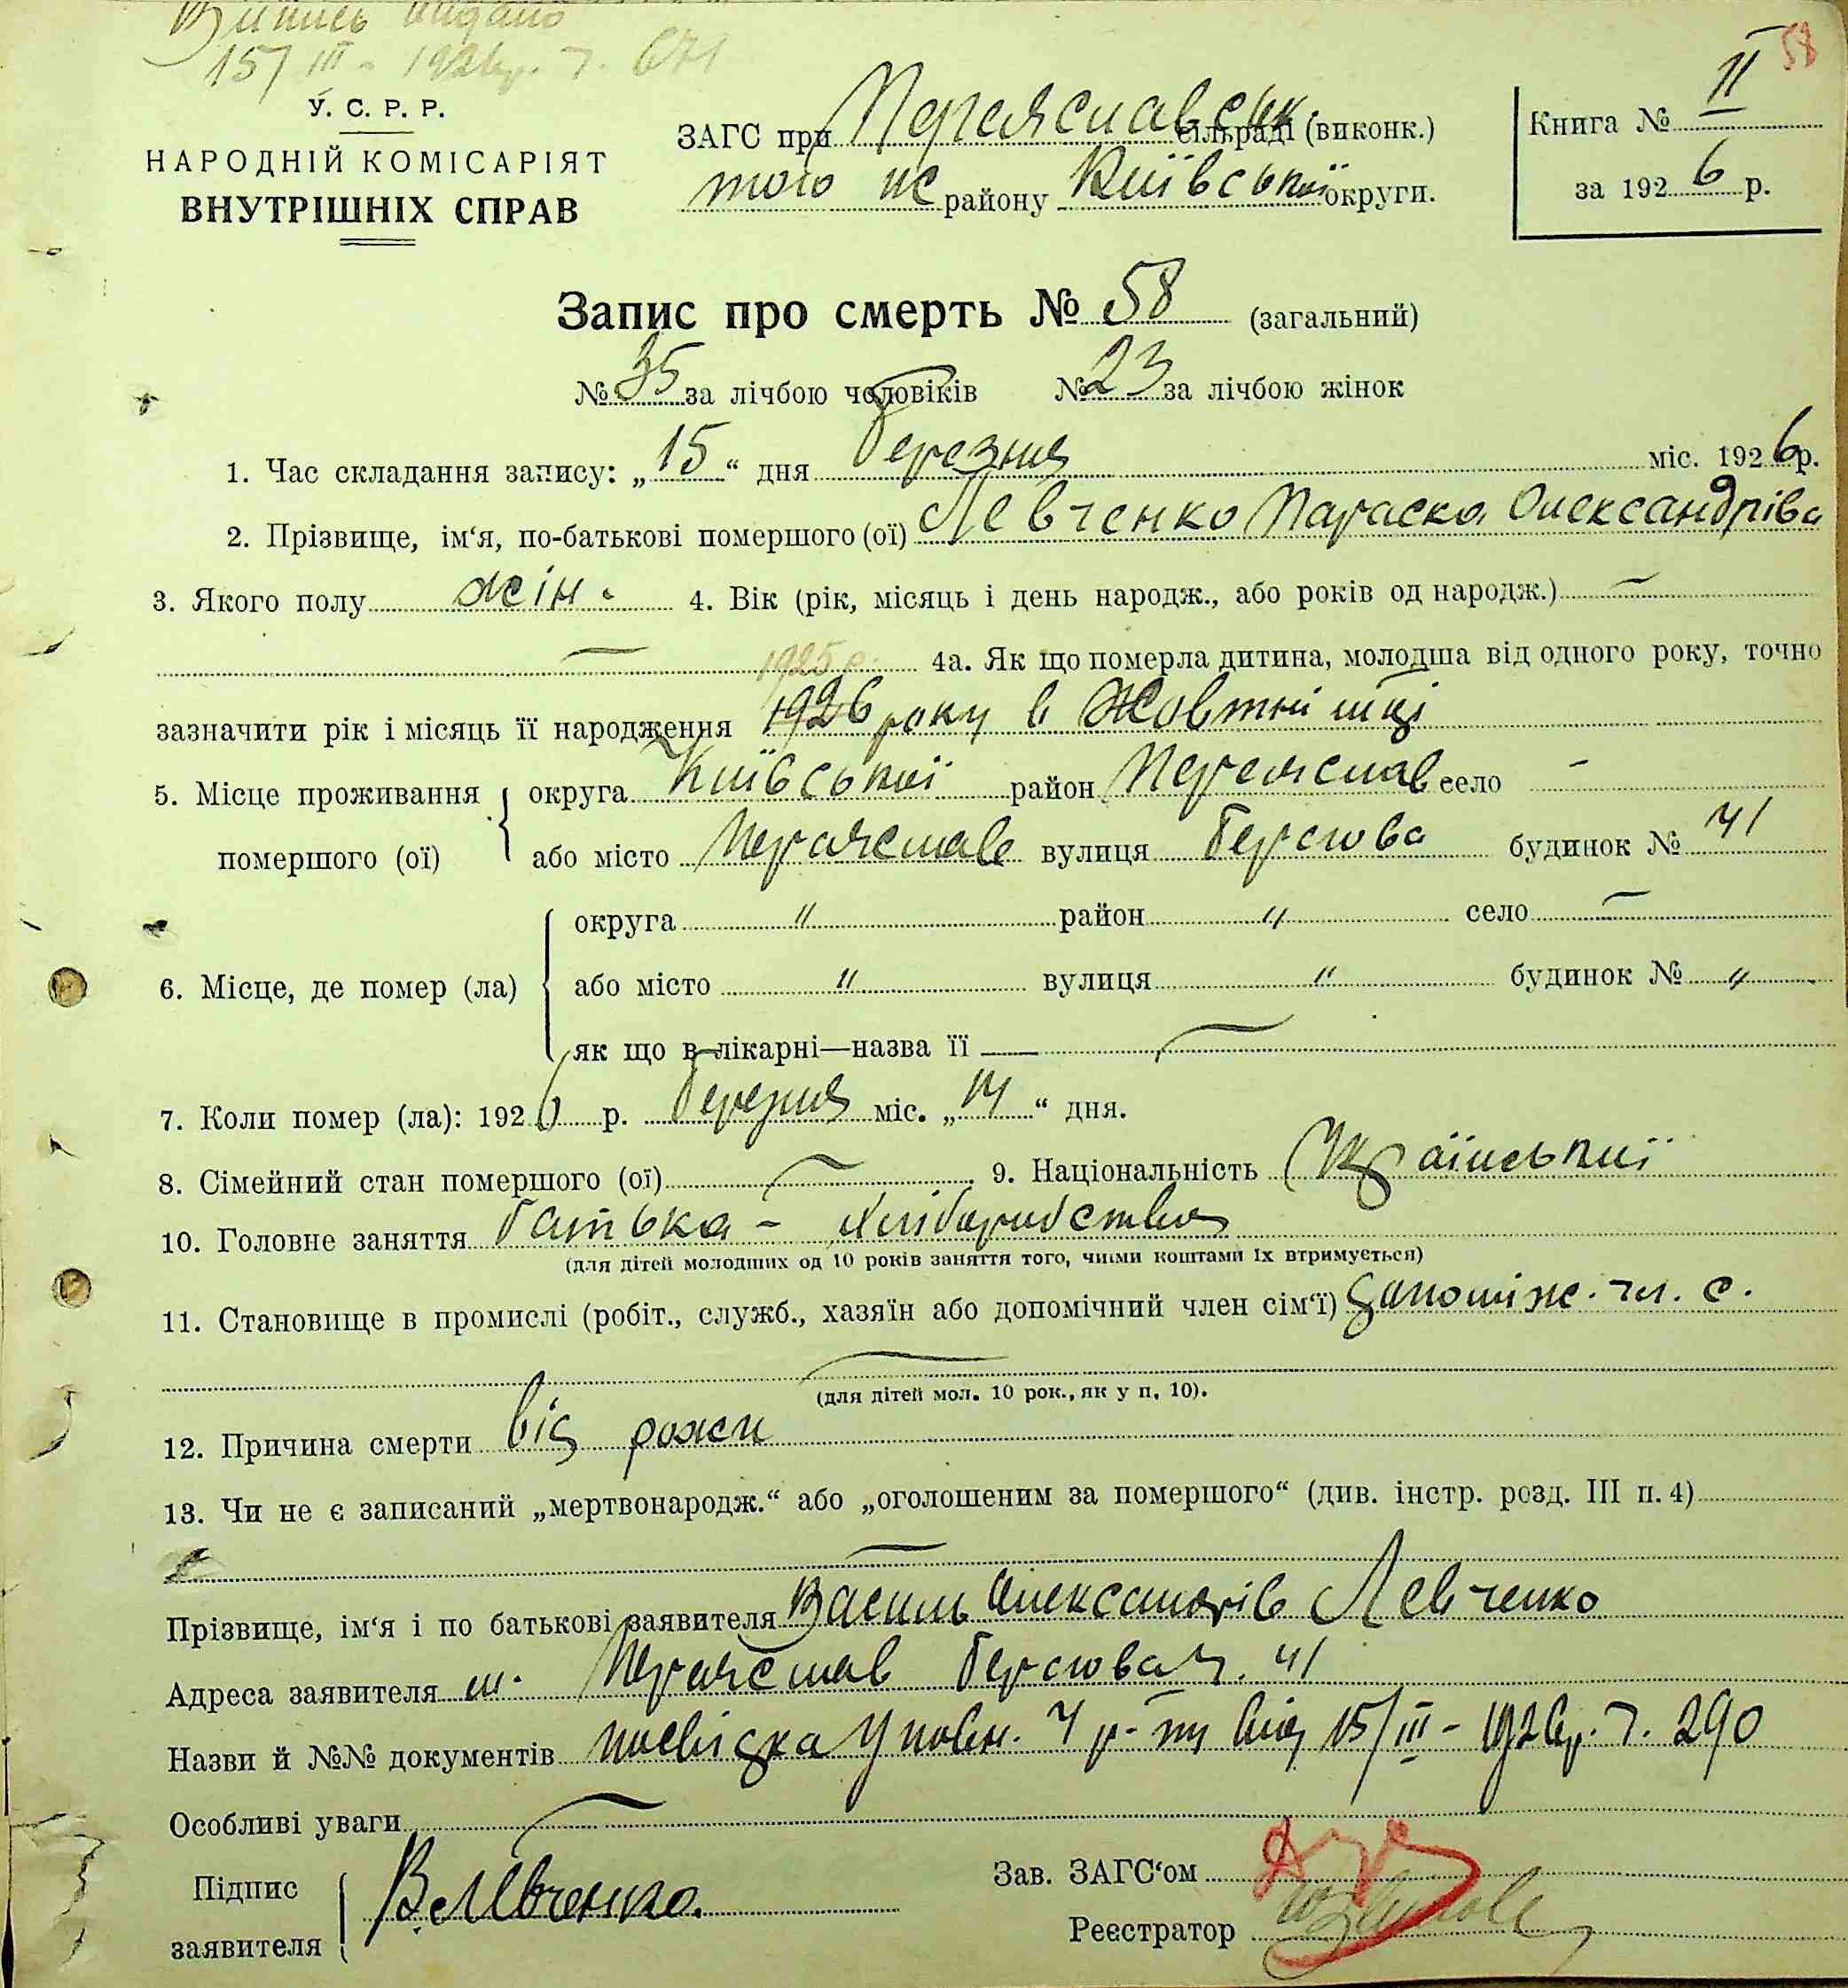 Випись видано
15/III - 1926р. ч. 671
58
У. С. Р. Р.
НАРОДНІЙ КОМІСАРІЯТ
ВНУТРІШНІХ СПРАВ
ЗАГС при Переяславськ. сільраді (виконк.)
того ж району Київської округи.
Книга № II
за 1926 р.
Запис про смерть № 58 (загальний)
№ 35 за лічбою чоловіків № 23 за лічбою жінок
1. Час складання запису: „15“ дня березня міс. 1926 р.
2. Прізвище, ім‘я, по-батькові помершого (ої) Левченко Параска Олександрівa
3. Якого полу жін. 4. Вік (рік, місяць і день народж., або років од народж.) —
— 1925 р. 4а. Як що померла дитина, молодша від одного року, точно
зазначити рік і місяць її народження 1926 року в Жовтні м-ці
5. Місце проживання помершого (ої) округа Київської район Переяслав село -
або місто Переяслав вулиця Берегова будинок № 41
6. Місце, де помер (ла) округа " район " село —
або місто " вулиця " будинок № "
як що в лікарні—назва її —
7. Коли помер (ла): 1926 р. березня міс. „14“ дня.
8. Сімейний стан помершого (ої) — 9. Національність Української
10. Головне заняття батька - хліборобство
(для дітей молодших од 10 років заняття того, чиїми коштами їх втримується)
11. Становище в промислі (робіт., служб., хазяїн або допомічний член сім‘ї) допоміж. чл. с.
—
(для дітей мол. 10 рок., як у п. 10).
12. Причина смерти від рожи
13. Чи не є записаний „мертвонародж.“ або „оголошеним за помершого“ (див. інстр. розд. III п. 4)
—
Прізвище, ім‘я і по батькові заявителя Василь Олександрів Левченко
Адреса заявителя м. Переяслав Берегова ч. 41
Назви й №№ документів посвідка Уповн. 4 р-ну від 15/III - 1926р. ч. 290
Особливі уваги —
Підпис заявителя В. Левченко.
Зав. ЗАГС‘ом
Реєстратор